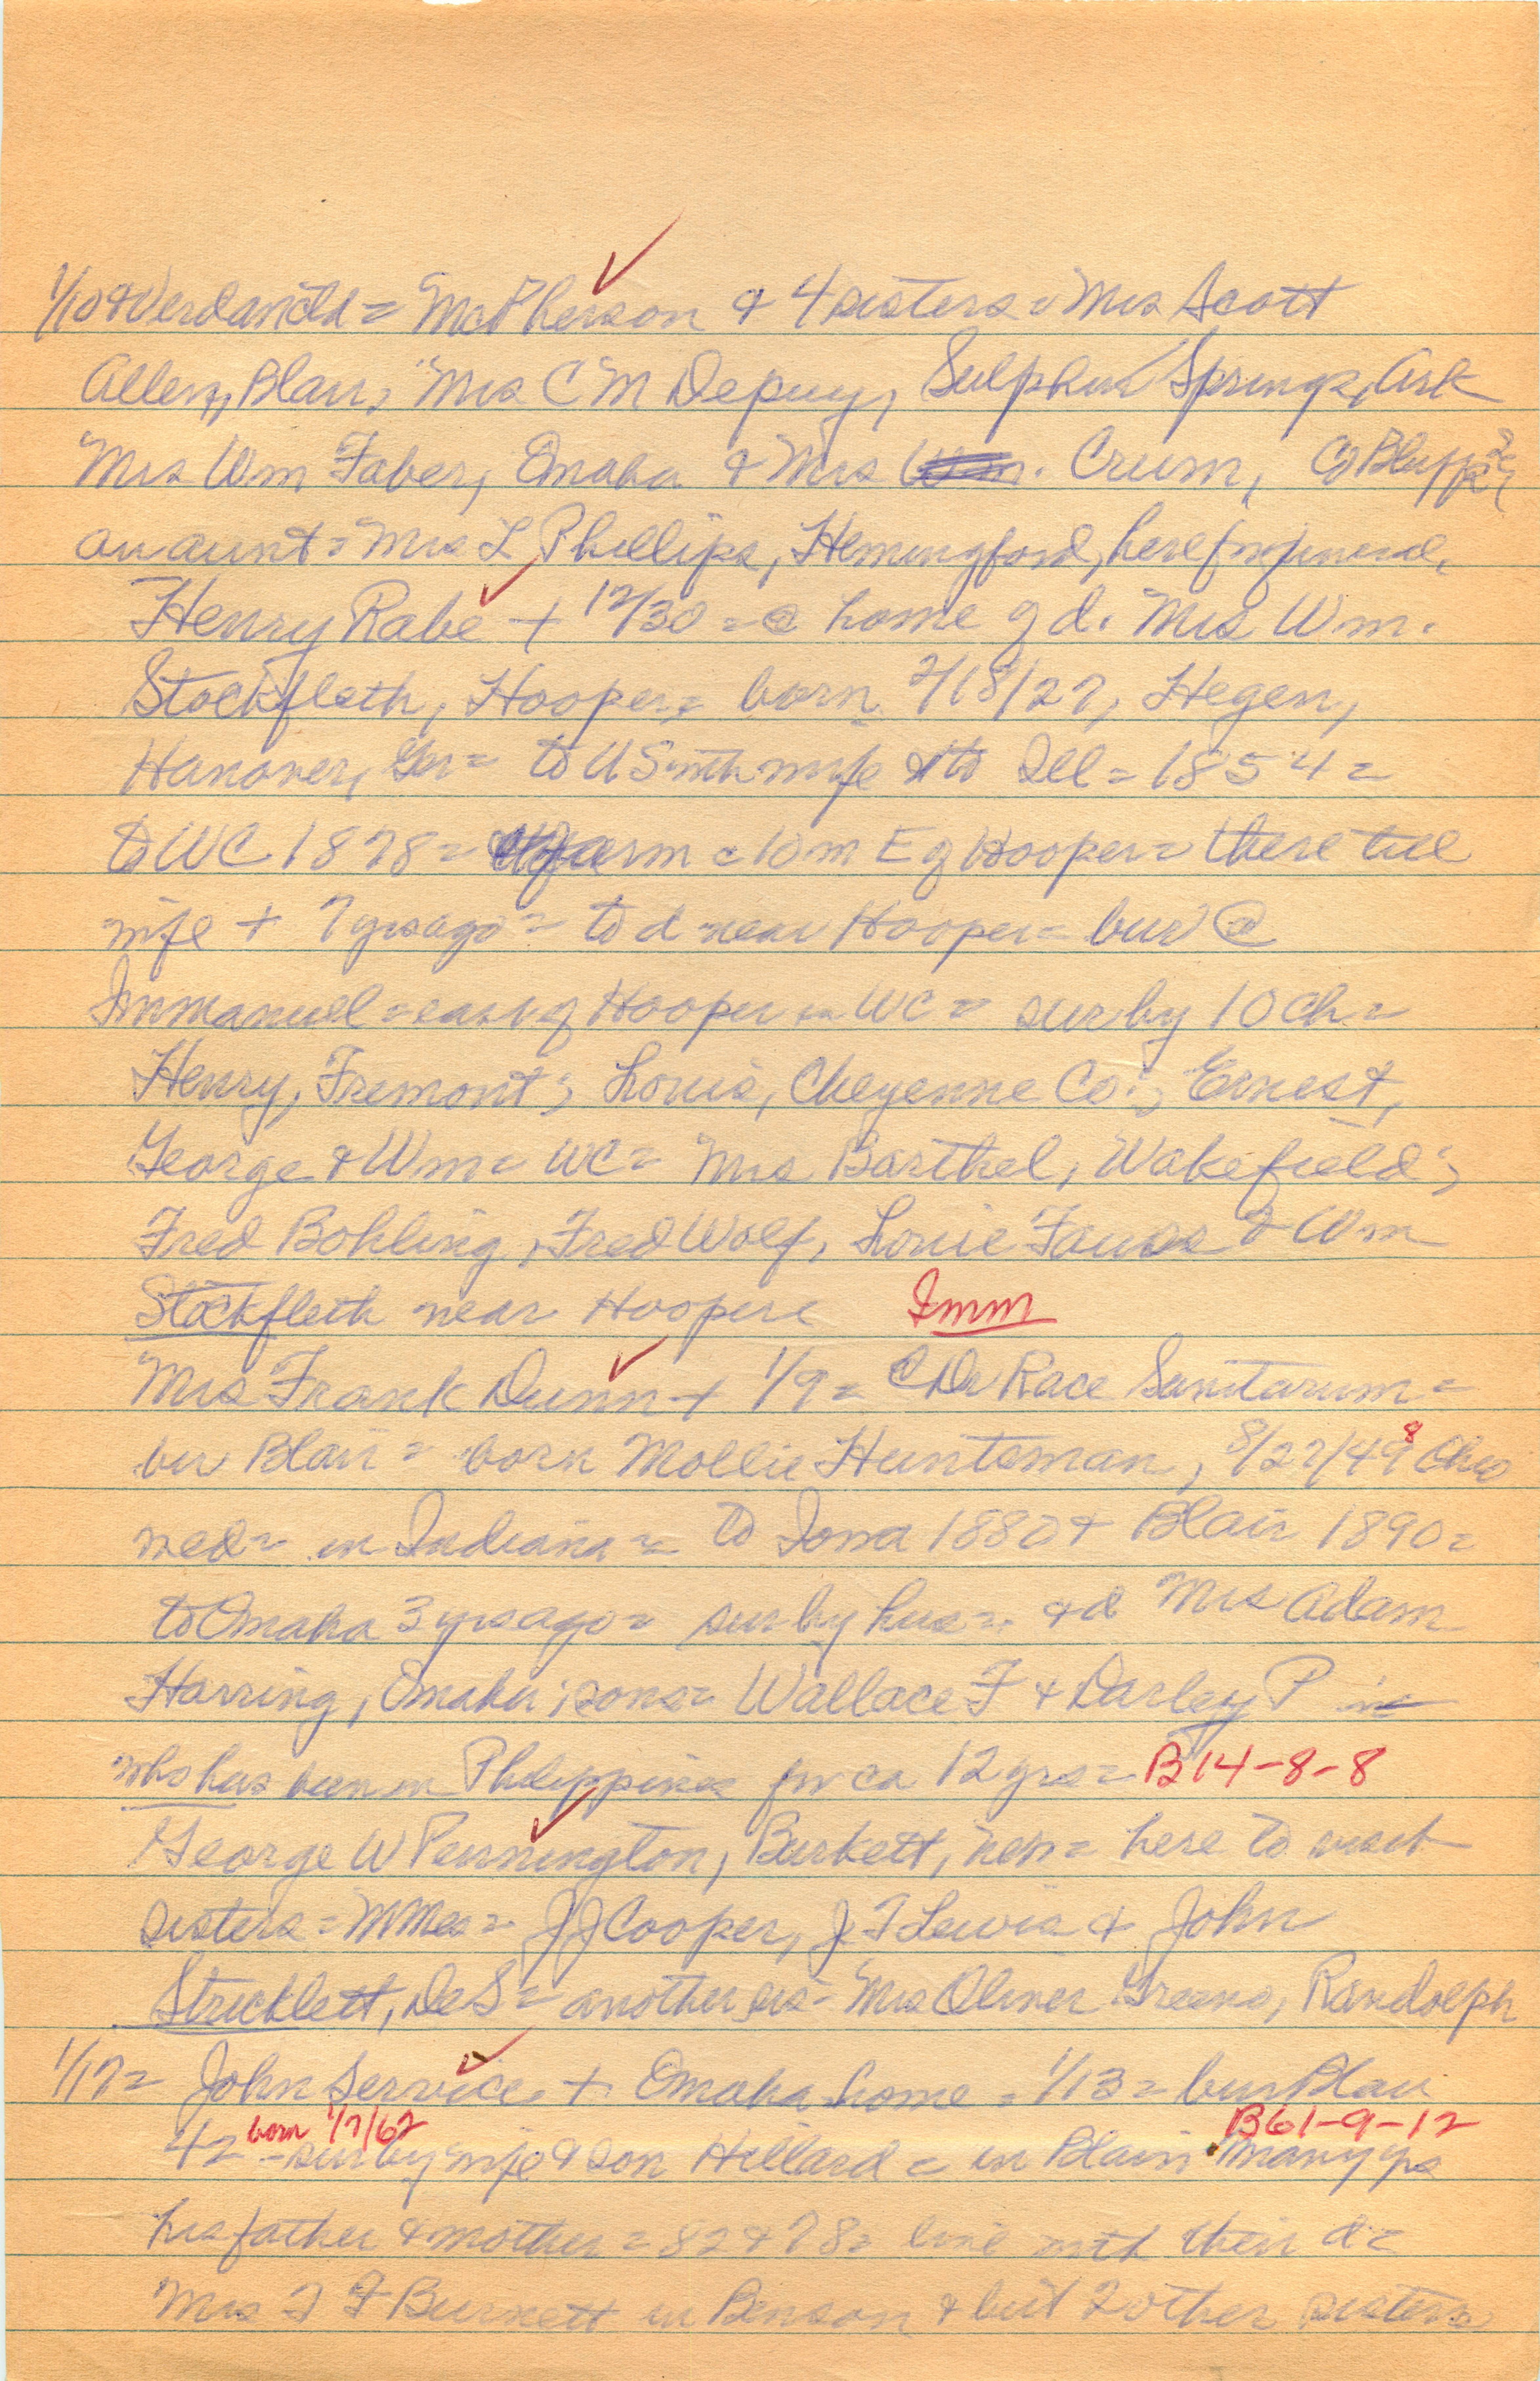 1/10 & = McPherson & 4 sisters = Mrs Scott
Allen, Blair, Mrs C M Depuy, Sulphur Springs, Ark
Mrs Wm Faber, Omaha & Mrs Crum, Co Bluffs
an aunt = Mrs L Phillips, Hemingford, here for funeral,
Henry Rabe + 12/30 = @ home of d. Mrs Wm.
Stockfleth, Hooper = born 2/18/27, Hegen,
Hanover, Ger = to US with wife & to Ill = 1854 =
to WC 1878 = farm = 10 m E of Hooper = there till
wife + 7 yrs ago = to d near Hooper = bur @
Immanuel = east of Hooper in WC = sur by 10 ch =
Henry, Fremont; Louis, Cheyenne Co.; Ernest,
George & Wm = WC = Mrs Barthel, Wakefield;
Fred Bohling, Fred Wolf, Louie Fauss & Wm
Stockfleth near Hooper Imm
Mrs Frank Dunn + 1/9 = @ Dr Race Sanitarum =
bur Blair = born Mollie Huntsman, 8/27/49 8 Ohio
wed = in Indiana = to Iowa 1880 & Blair 1890 =
to Omaha 3 yrs ago = sur by hus = & d Mrs Adam
Harring, Omaha; sons = Wallace F & Darley P in
who has been in Philippines for ca 12 yrs = B14-8-8
George W Pennington, Burkett, Neb = here to visit
sisters = Mmes = J J Cooper, J F Lewis & John
Stricklett, DeS = another sis = Mrs Oliver Greeno, Randolph
1/17 = John Service + Omaha home = 1/13 = bur Blair
born 1/7/62 B61-9-12
42 = sur by wife & son Hillard = in Blair many yrs
his father & mother = 82 & 78 = live with their d =
Mrs F F Burnett in Benson & but 2 other sisters